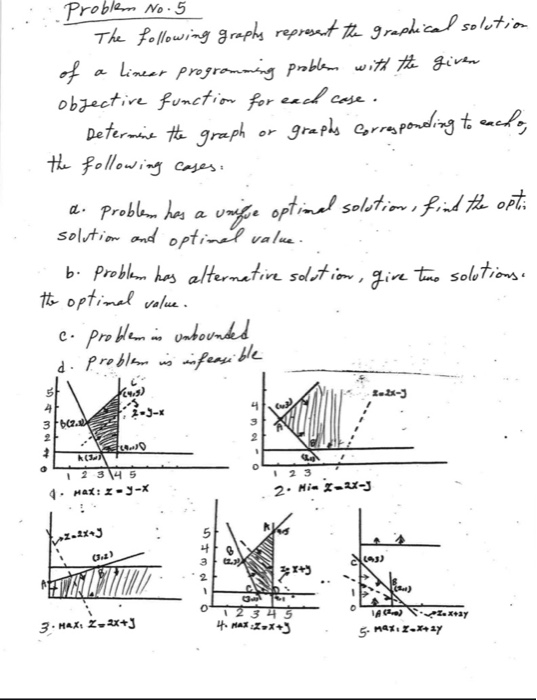 Problem No. 5
The following graphs represent the graphical solution
of a linear programming problem with the given
objective function for each case.
Determine the graph or graphs corresponding to each of
the following cases:
a. Problem has a unique optimal solution, find the opti
solution and optimal value.
b. Problem has alternative solution, give two solutions.
the optimal value.
c. Problem is unbounded
d. Problem is infeasible
5
4
3
2
C
(4,5)
Z=y-x
B(2,3)
0
1 2 3 4 5
1. Max: Z=y-x
4
3
2
1
0
1 2 3
Z=2x-y
2. Min Z=2x-y
Z=2x+y
(3,2)
A
3. Max: Z=2x+y
5
4
3
2
1
0
A
B
(2,3)
Z=x+y
1 2 3 4 5
4. Max: Z=x+y
C
(0,3)
B
(2,1)
1
0
Z=x+2y
5. Max: Z=x+2y